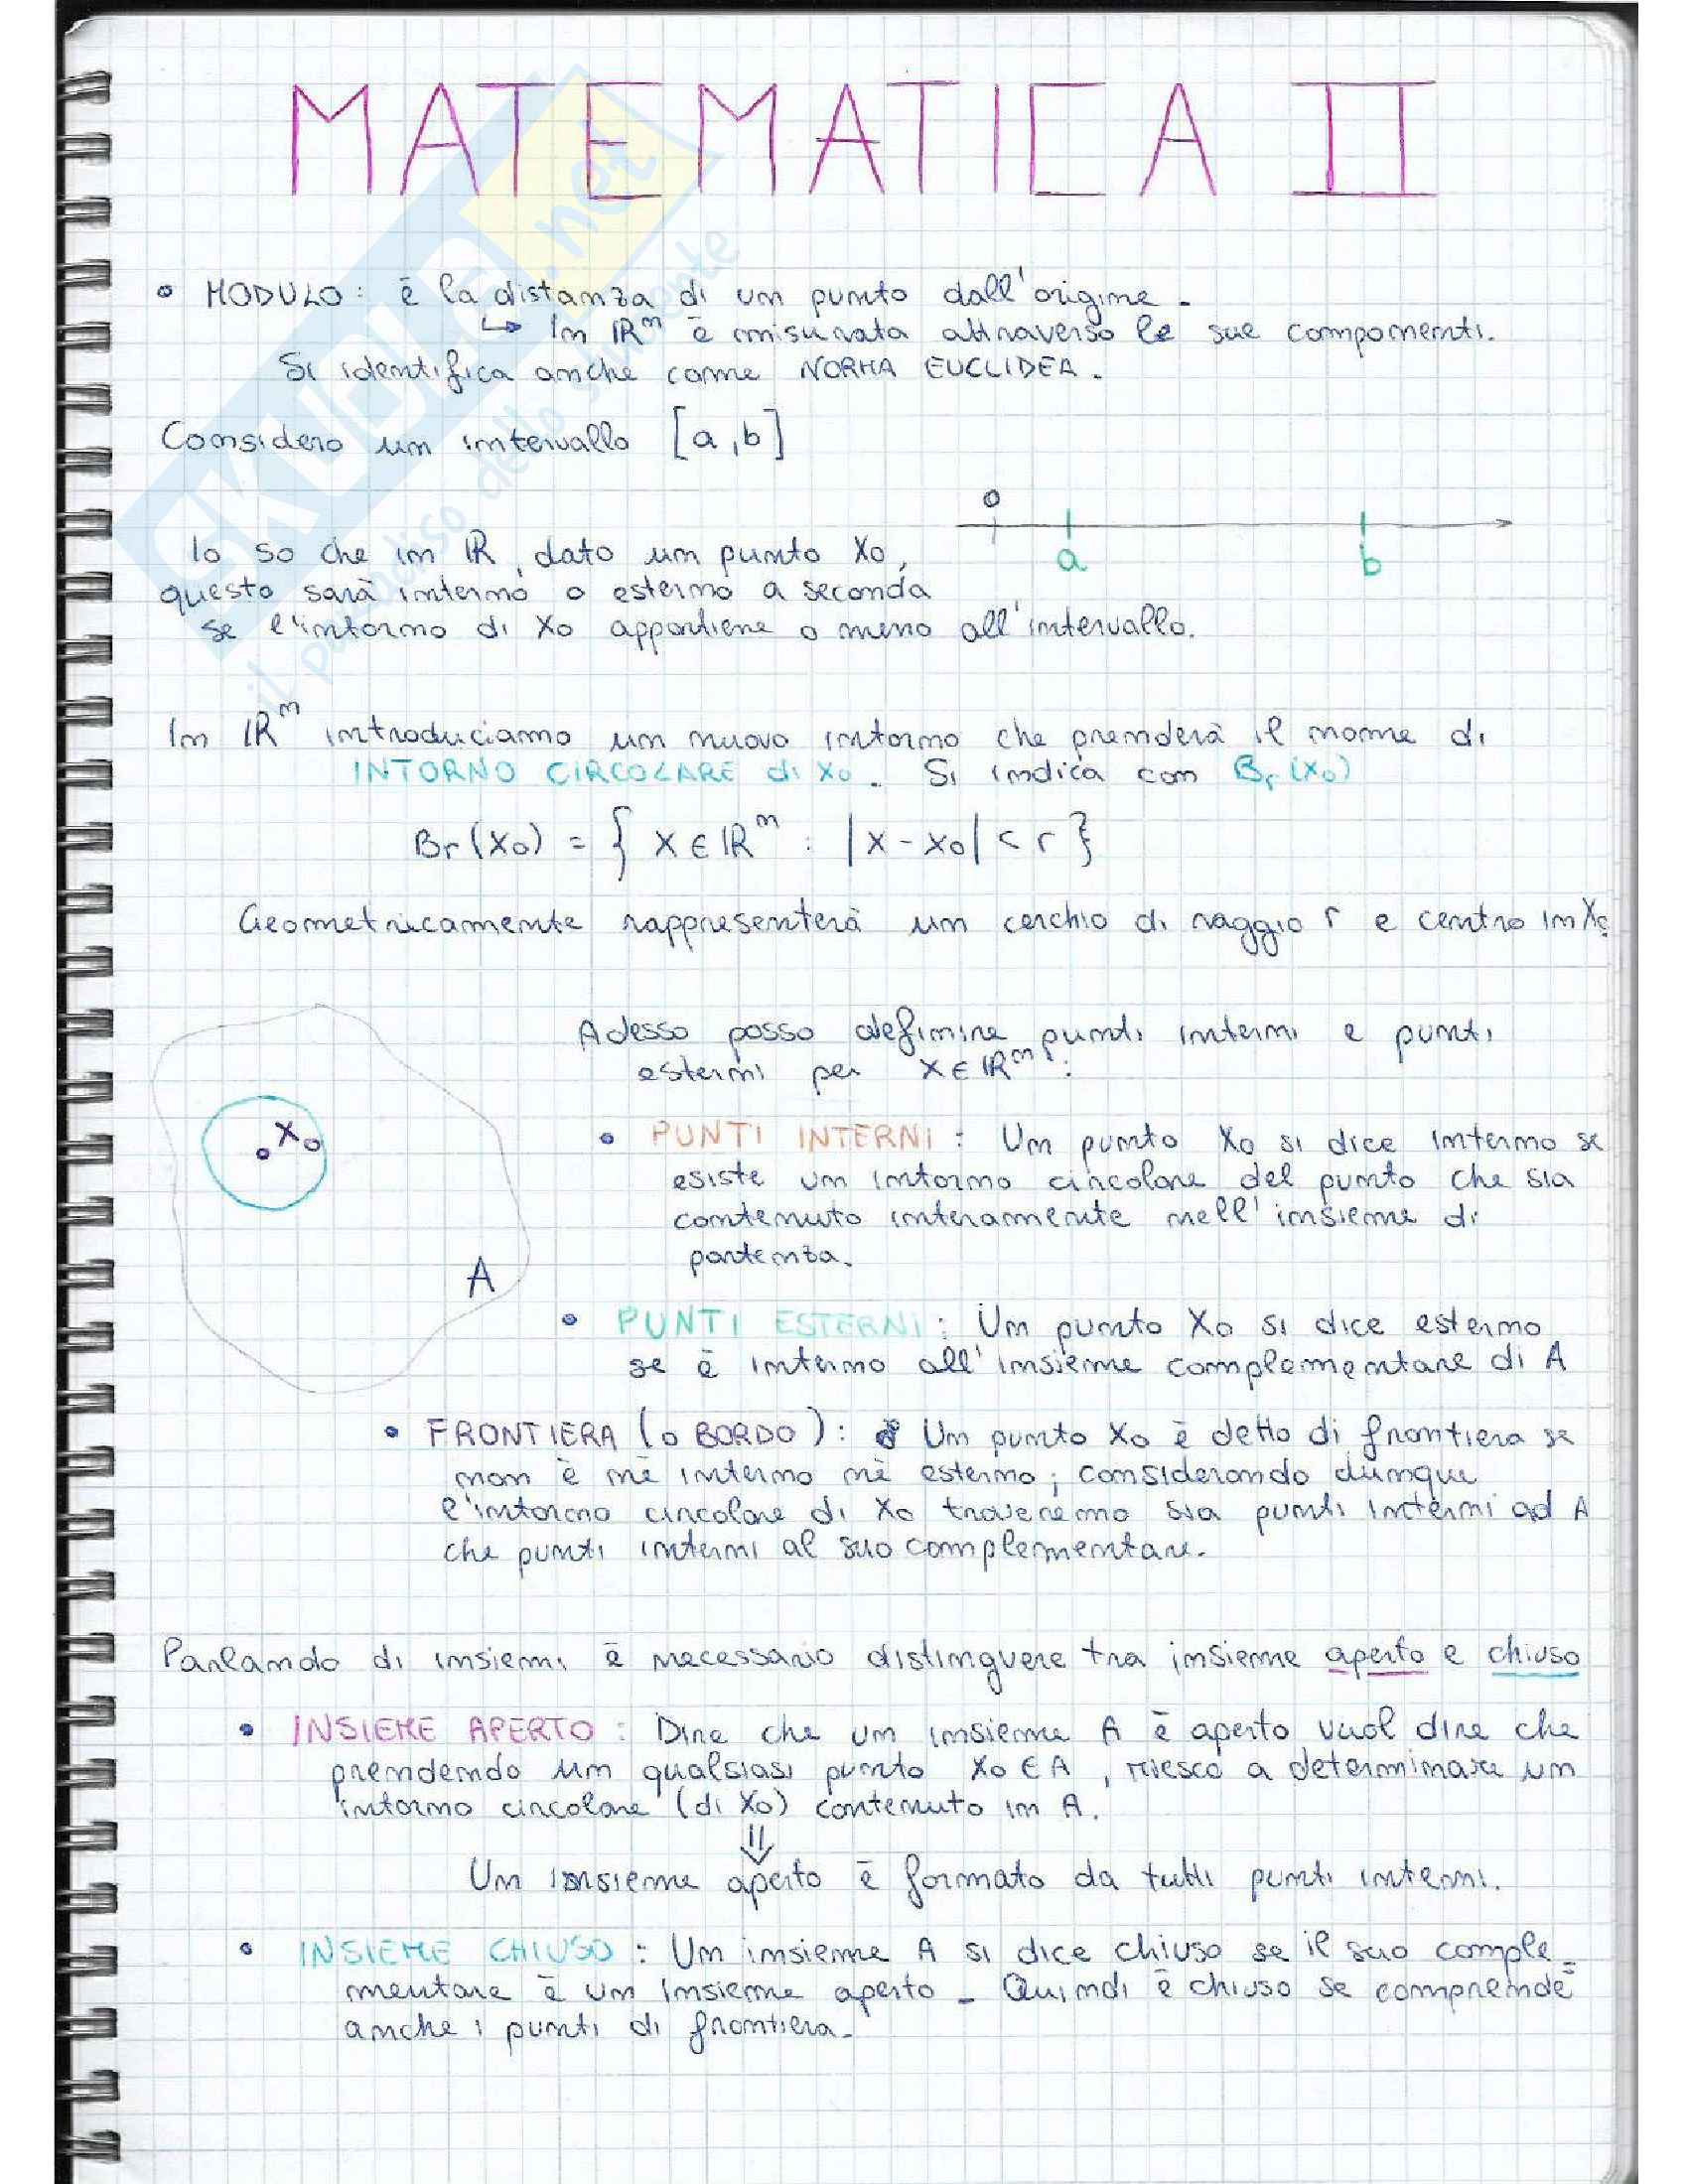 MATEMATICA II
• MODULO: è la distanza di un punto dall'origine.
↳ In ℝⁿ è misurata attraverso le sue componenti.
Si identifica anche come NORMA EUCLIDEA.
Considero un intervallo [a,b]
0
a b
Io so che in ℝ, dato un punto x₀,
questo sarà interno o esterno a seconda
se l'intorno di x₀ appartiene o meno all'intervallo.
In ℝⁿ introduciamo un nuovo intorno che prenderà il nome di
INTORNO CIRCOLARE di x₀. Si indica con Bᵣ(x₀)
Br(x₀) = { x ∈ ℝⁿ : |x - x₀| < r }
Geometricamente rappresenterà un cerchio di raggio r e centro in x₀
Adesso posso definire punti interni e punti
esterni per x ∈ ℝⁿ:
x₀
A
• PUNTI INTERNI: Un punto x₀ si dice interno se
esiste un intorno circolare del punto che sia
contenuto interamente nell'insieme di
partenza.
• PUNTI ESTERNI: Un punto x₀ si dice esterno
se è interno all'insieme complementare di A
• FRONTIERA (o BORDO): Un punto x₀ è detto di frontiera se
non è nè interno nè esterno; considerando dunque
l'intorno circolare di x₀ troveremo sia punti interni ad A
che punti interni al suo complementare.
Parlando di insiemi è necessario distinguere tra insieme aperto e chiuso
• INSIEME APERTO: Dire che un insieme A è aperto vuol dire che
prendendo un qualsiasi punto x₀ ∈ A, riesco a determinare un
intorno circolare (di x₀) contenuto in A.
⇓
Un insieme aperto è formato da tutti punti interni.
• INSIEME CHIUSO: Un insieme A si dice chiuso se il suo comple-
mentare è un insieme aperto. Quindi è chiuso se comprende
anche i punti di frontiera.
SKUOLA.net
il paradiso dello studente